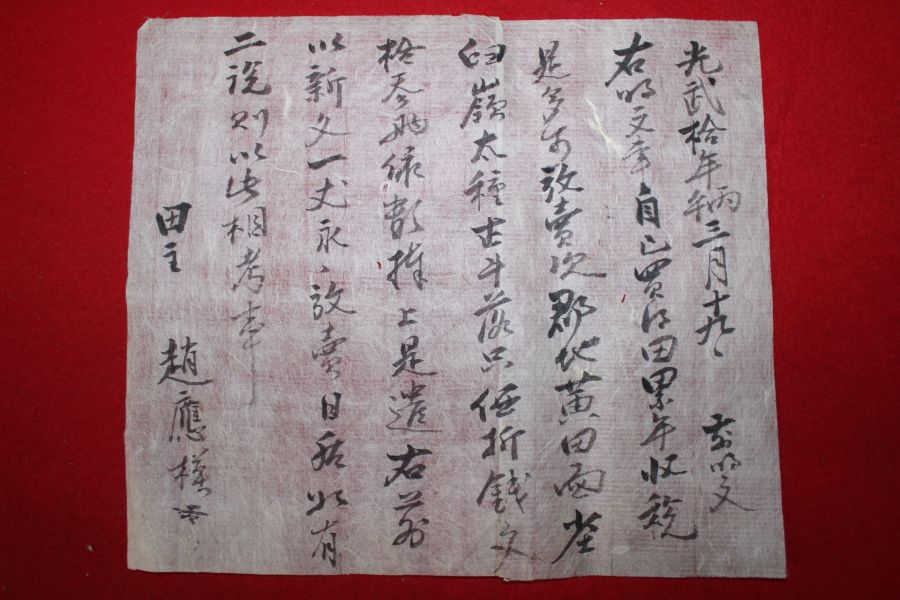 光武拾年丙午三月十九日 前明文
右明文事自己買得田累年收稅
是多可放賣次郡地黃田面坐
臼嶺太種古斗落只価折錢文
拾叁兩依數捧上是遣右前
以新文一丈永々放賣日後以有
二說則以此相考事
田主 趙應模